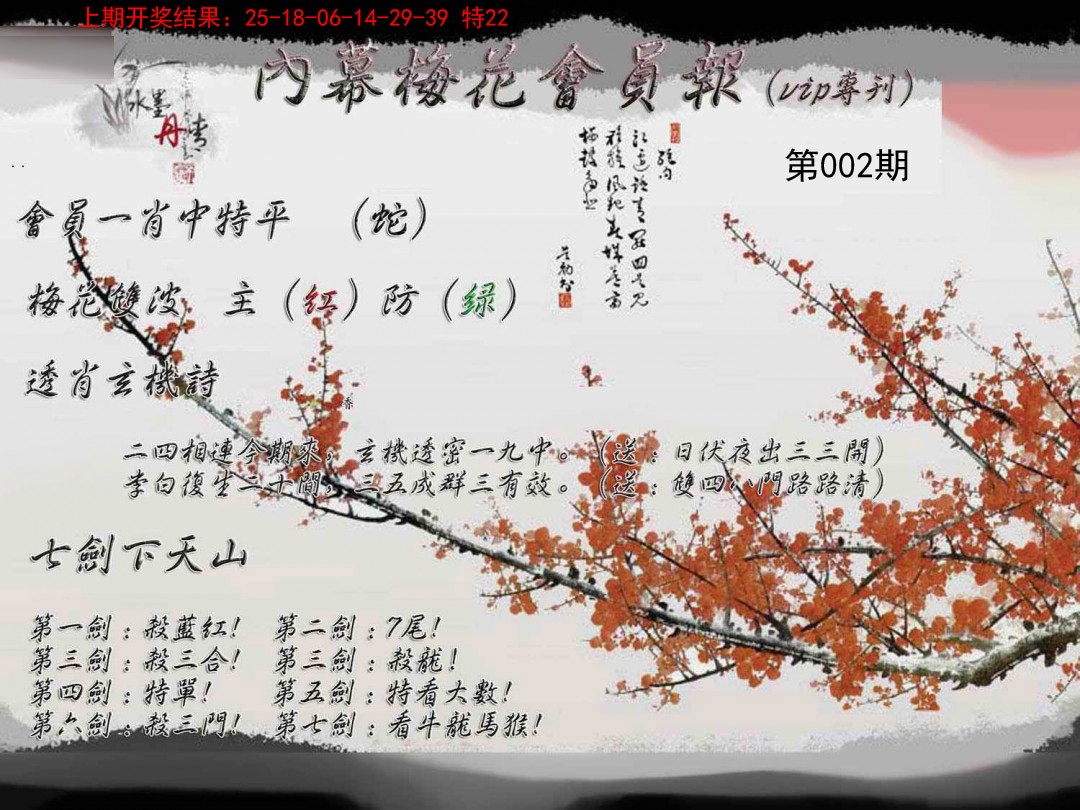 上期开奖结果：25-18-06-14-29-39 特22
內幕梅花會員報（vip專刊）
水墨
丹青
第002期
會員一肖中特平 （蛇）
梅花雙波 主（红）防（绿）
透肖玄機詩
二四相連今期來，玄機透密一九中。（送：日伏夜出三三開）
李白復生二十間，三五成群三有效。（送：雙四八門路路清）
七劍下天山
第一劍：殺藍紅！ 第二劍：7尾！
第三劍：殺三合！ 第三劍：殺龍！
第四劍：特單！ 第五劍：特看大數！
第六劍：殺三門！ 第七劍：看牛龍馬猴！